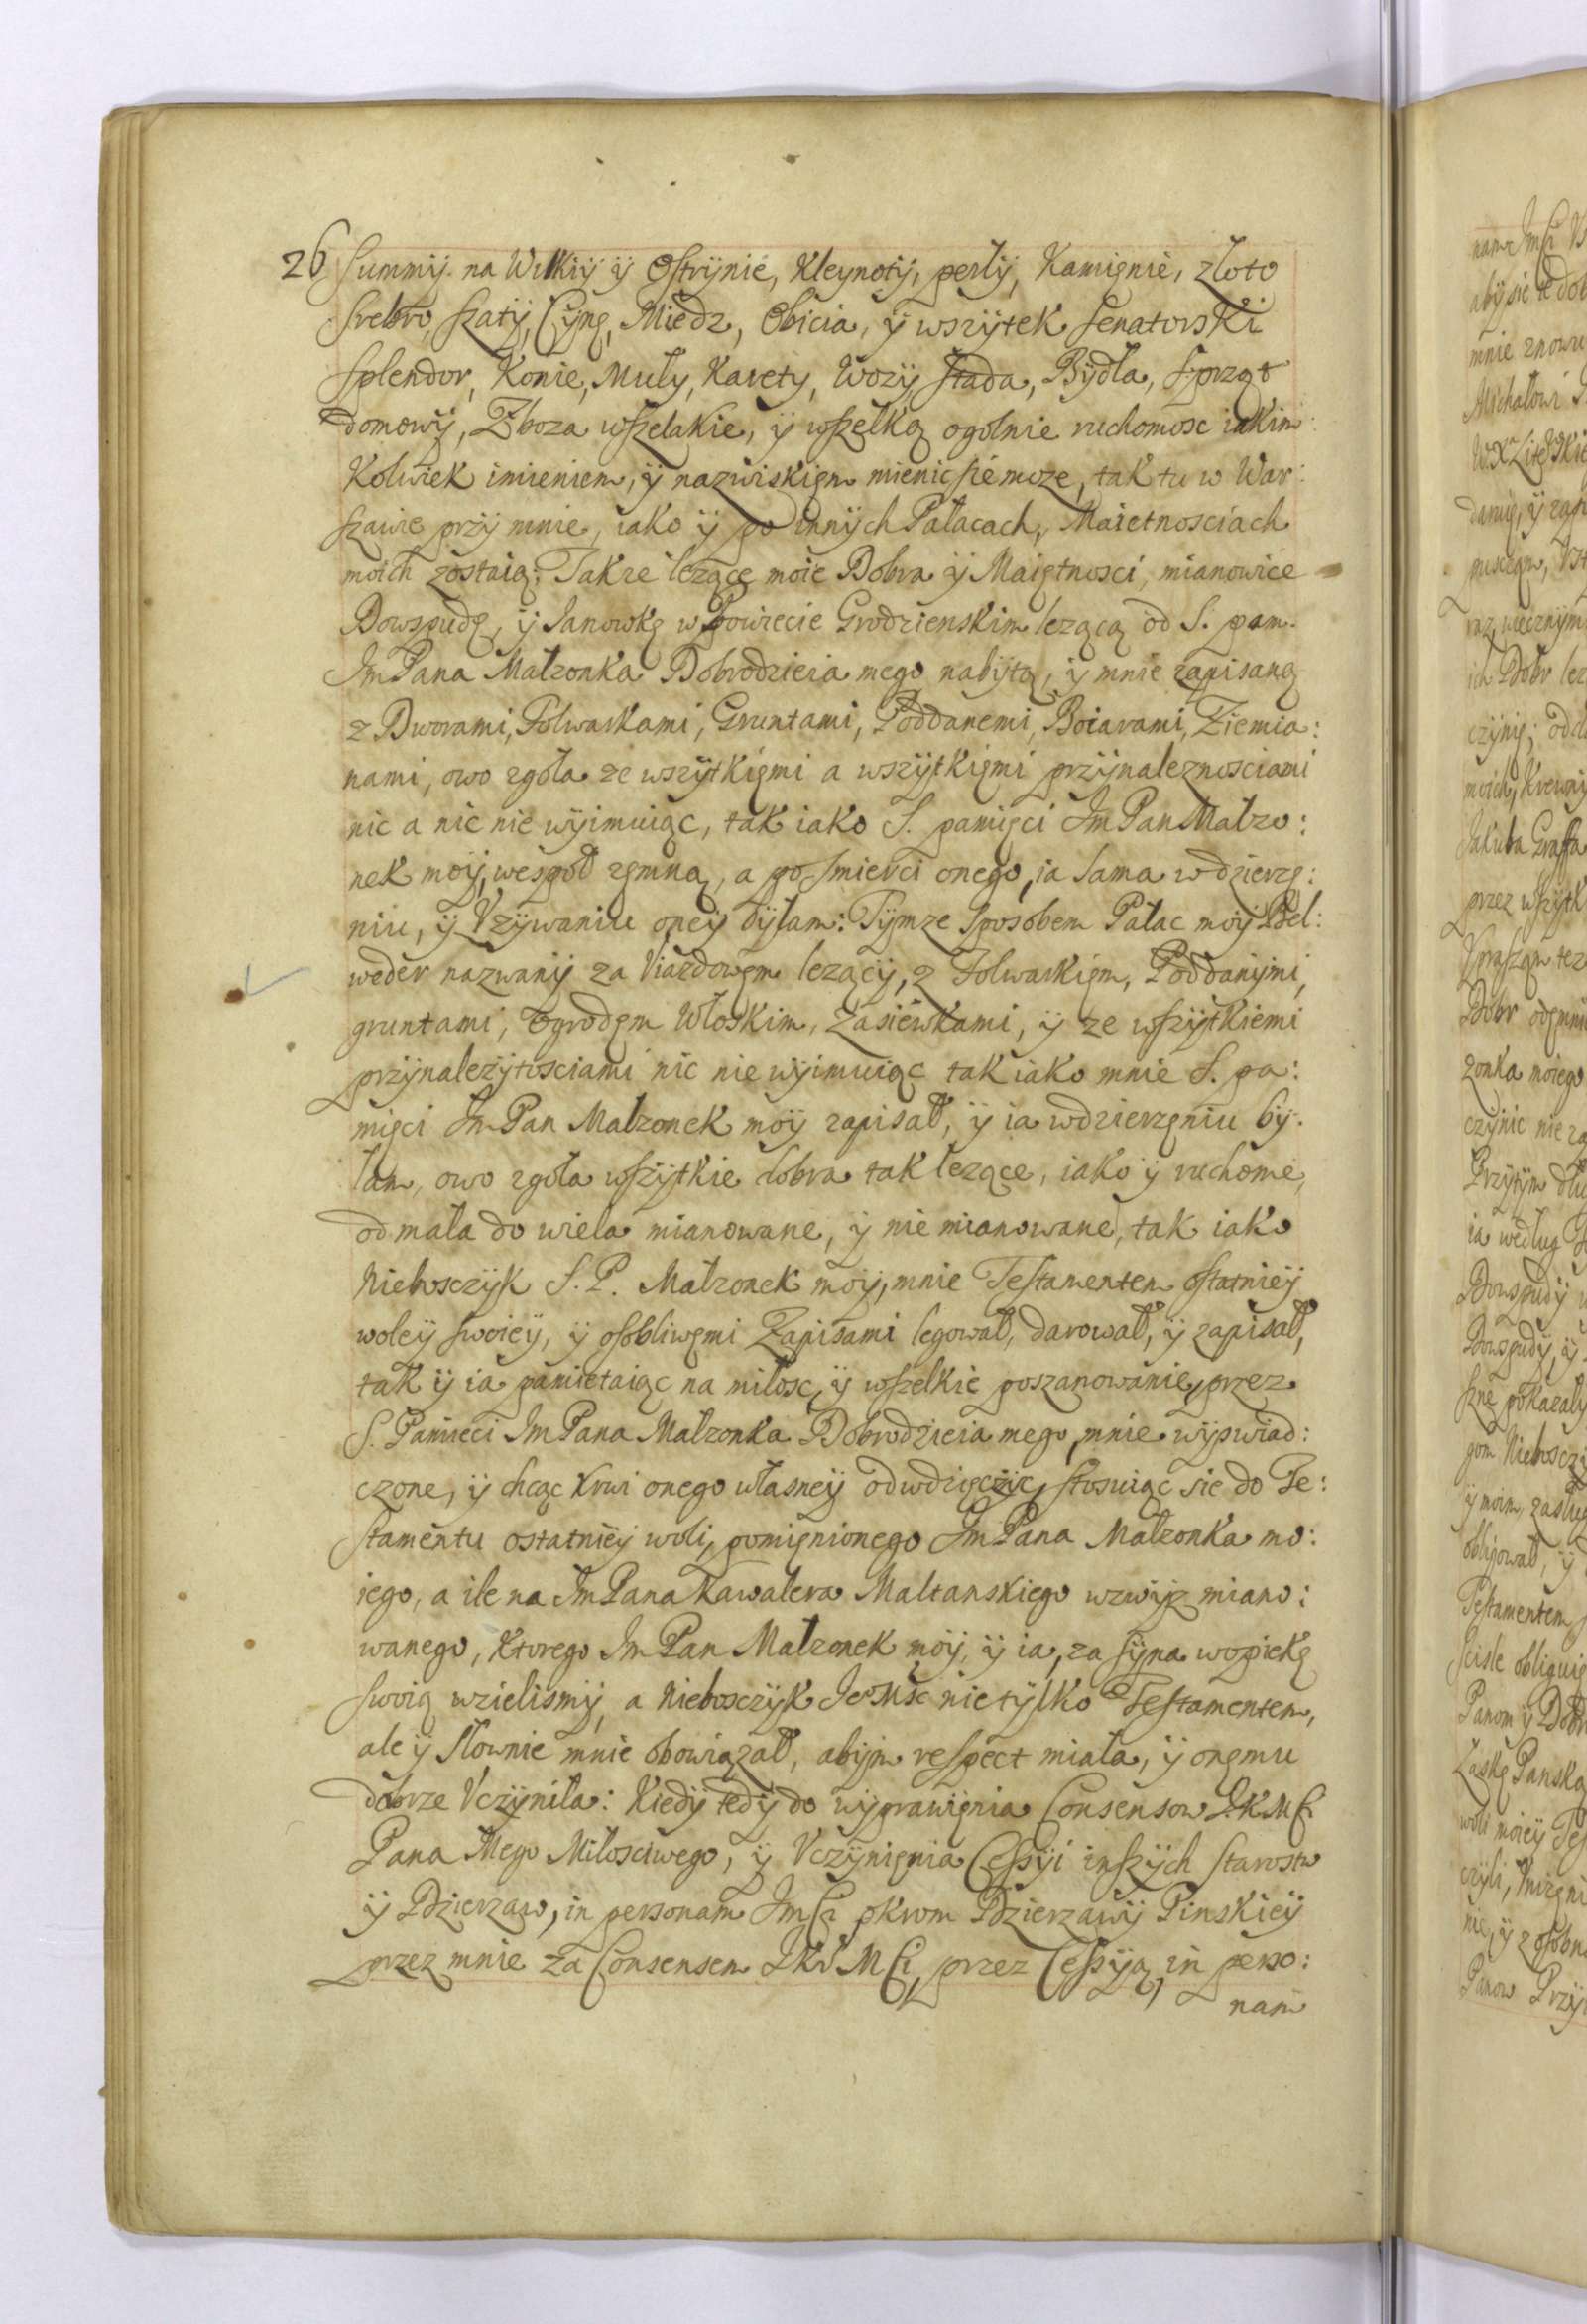 26 Summÿ na Wilkiÿ ÿ Ostrÿnie, Kleynotÿ, perłÿ, Kamięnie, złoto
Srebro, Szatÿ, Cÿnę, Miedz, Obicia, ÿ wszÿtek Senatorski
Splendor, Konie, Muły, Karety, Wozÿ, Stada, Bÿdła, Sprzęt
domowÿ, Zboza wszelakie, ÿ wszelką ogolnie ruchomosc iakim
Kolwiek imieniem, ÿ nazwiskięm mienic sie moze, tak tu w War:
szawie przÿ mnie, iako ÿ po innÿch Pałacach, Maietnosciach
moich zostaią: Takze lezące moie Dobra ÿ Maiętnosci, mianowice
Dowspudę, ÿ Janowkę w Powiecie Grodzienskim lezącą od S. pam.
Jm Pana Małzonka Dobrodzieia mego nabÿtą, ÿ mnie zapisaną
z Dworami, Folwarkami, Gruntami, Poddanemi, Boiarami, Ziemia:
nami, owo zgoła ze wszÿtkięmi a wszÿtkięmi przÿnaleznosciami
nic a nic nie wÿimuiąc, tak iako S. pamięci Jm Pan Małzo:
nek moÿ, wespoł zęmną, a po Smierci onego, ia sama w dzierzę:
niu, ÿ Vzÿwaniu oneÿ bÿłam: Tÿmze sposobem Pałac moÿ Bel:
weder nazwanÿ za Viazdowęm lezącÿ, z Folwarkięm, Poddanÿmi,
gruntami, Ogrodęm Włoskim, Zasiewkami, ÿ ze wszÿtkiemi
przÿnalezÿtosciami nic nie wÿimuiąc tak iako mnie S. pa:
mięci Jm Pan Małzonek moÿ zapisał, ÿ ia w dzierzęniu bÿ:
łam, owo zgoła wszÿtkie dobra tak lezące, iako ÿ ruchome,
od mała do wiela mianowane, ÿ nie mianowane, tak iako
Niebosczÿk S. P. Małzonek moÿ, mnie Testamentem ostatnieÿ
woleÿ swoieÿ, ÿ osobliwęmi Zapisami legował, darował, ÿ zapisał,
tak ÿ ia pamietaiąc na miłosc, ÿ wszelkie poszanowanie, przez
S. Pamieci Jm Pana Małzonka Dobrodzieia mego, mnie wÿswiad:
czone, ÿ chcąc Krwi onego własneÿ odwdzięczÿc, stosuiąc sie do Te:
stamentu ostatnieÿ woli, pomięnionego Jm Pana Małzonka mo:
iego, a ile na Jm Pana Kawalera Maltanskiego wzwÿz miano:
wanego, Ktorego Jm Pan Małzonek moÿ, ÿ ia, za sÿna w opiekę
swoię wzielismÿ, a Niebosczÿk Jeo Msc nie tÿlko Testamentem,
ale ÿ słownie mnie obowiązał, abÿm respect miała, ÿ onęmu
dobrze Vczÿniła: Kiedÿ tedÿ do wÿprawięnia Consensow J. K M Ci
Pana Mego Miłosciwego, ÿ Vczÿnięnia Cessÿi inszÿch Starostw
ÿ Dzierzaw, in personam Jm Ci okrom Dzierzawÿ Pinskieÿ
przez mnie za Consensem J Kr M Ci, przez Cessÿą in perso:
nam